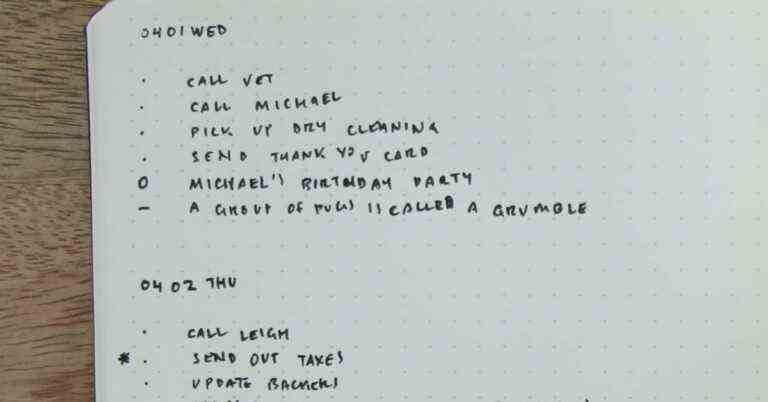 04 01 WED
· CALL VET
· CALL MICHAEL
· PICK UP DRY CLEANING
· SEND THANK YOU CARD
O MICHAEL'S BIRTHDAY PARTY
– A GROUP OF PUGS IS CALLED A GRUMBLE
04 02 THU
· CALL LEIGH
* · SEND OUT TAXES
· UPDATE BACKERS